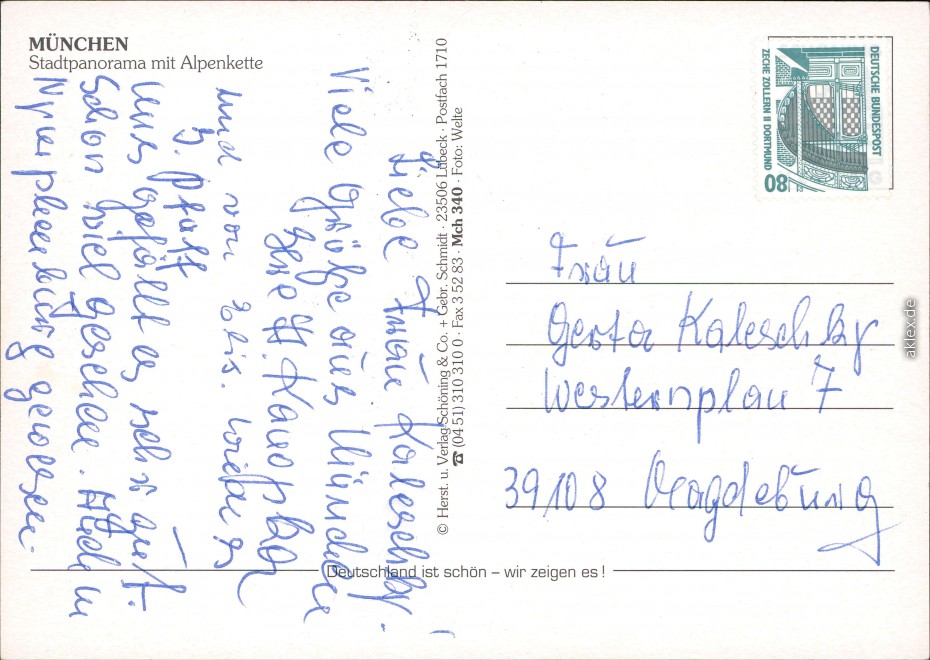 MÜNCHEN
Stadtpanorama mit Alpenkette
Liebe Frau Kaleschky!
Viele Grüße aus München
Ihre H.
und von
J. Pfaff
Uns gefällt es sehr gut.
Schon viel gesehen. Auch in
Nymphenburg gewesen.
© Herst. u. Verlag Schöning & Co. + Gebr. Schmidt · 23506 Lübeck · Postfach 1710
☎ (04 51) 310 310 0 · Fax 3 52 83 · Mch 340 · Foto: Welte
DEUTSCHE BUNDESPOST
ZECHE ZOLLERN II DORTMUND
80
Frau
Gerta Kaleschky
Westernplan 7
39108 Magdeburg
Deutschland ist schön – wir zeigen es !
aklex.de